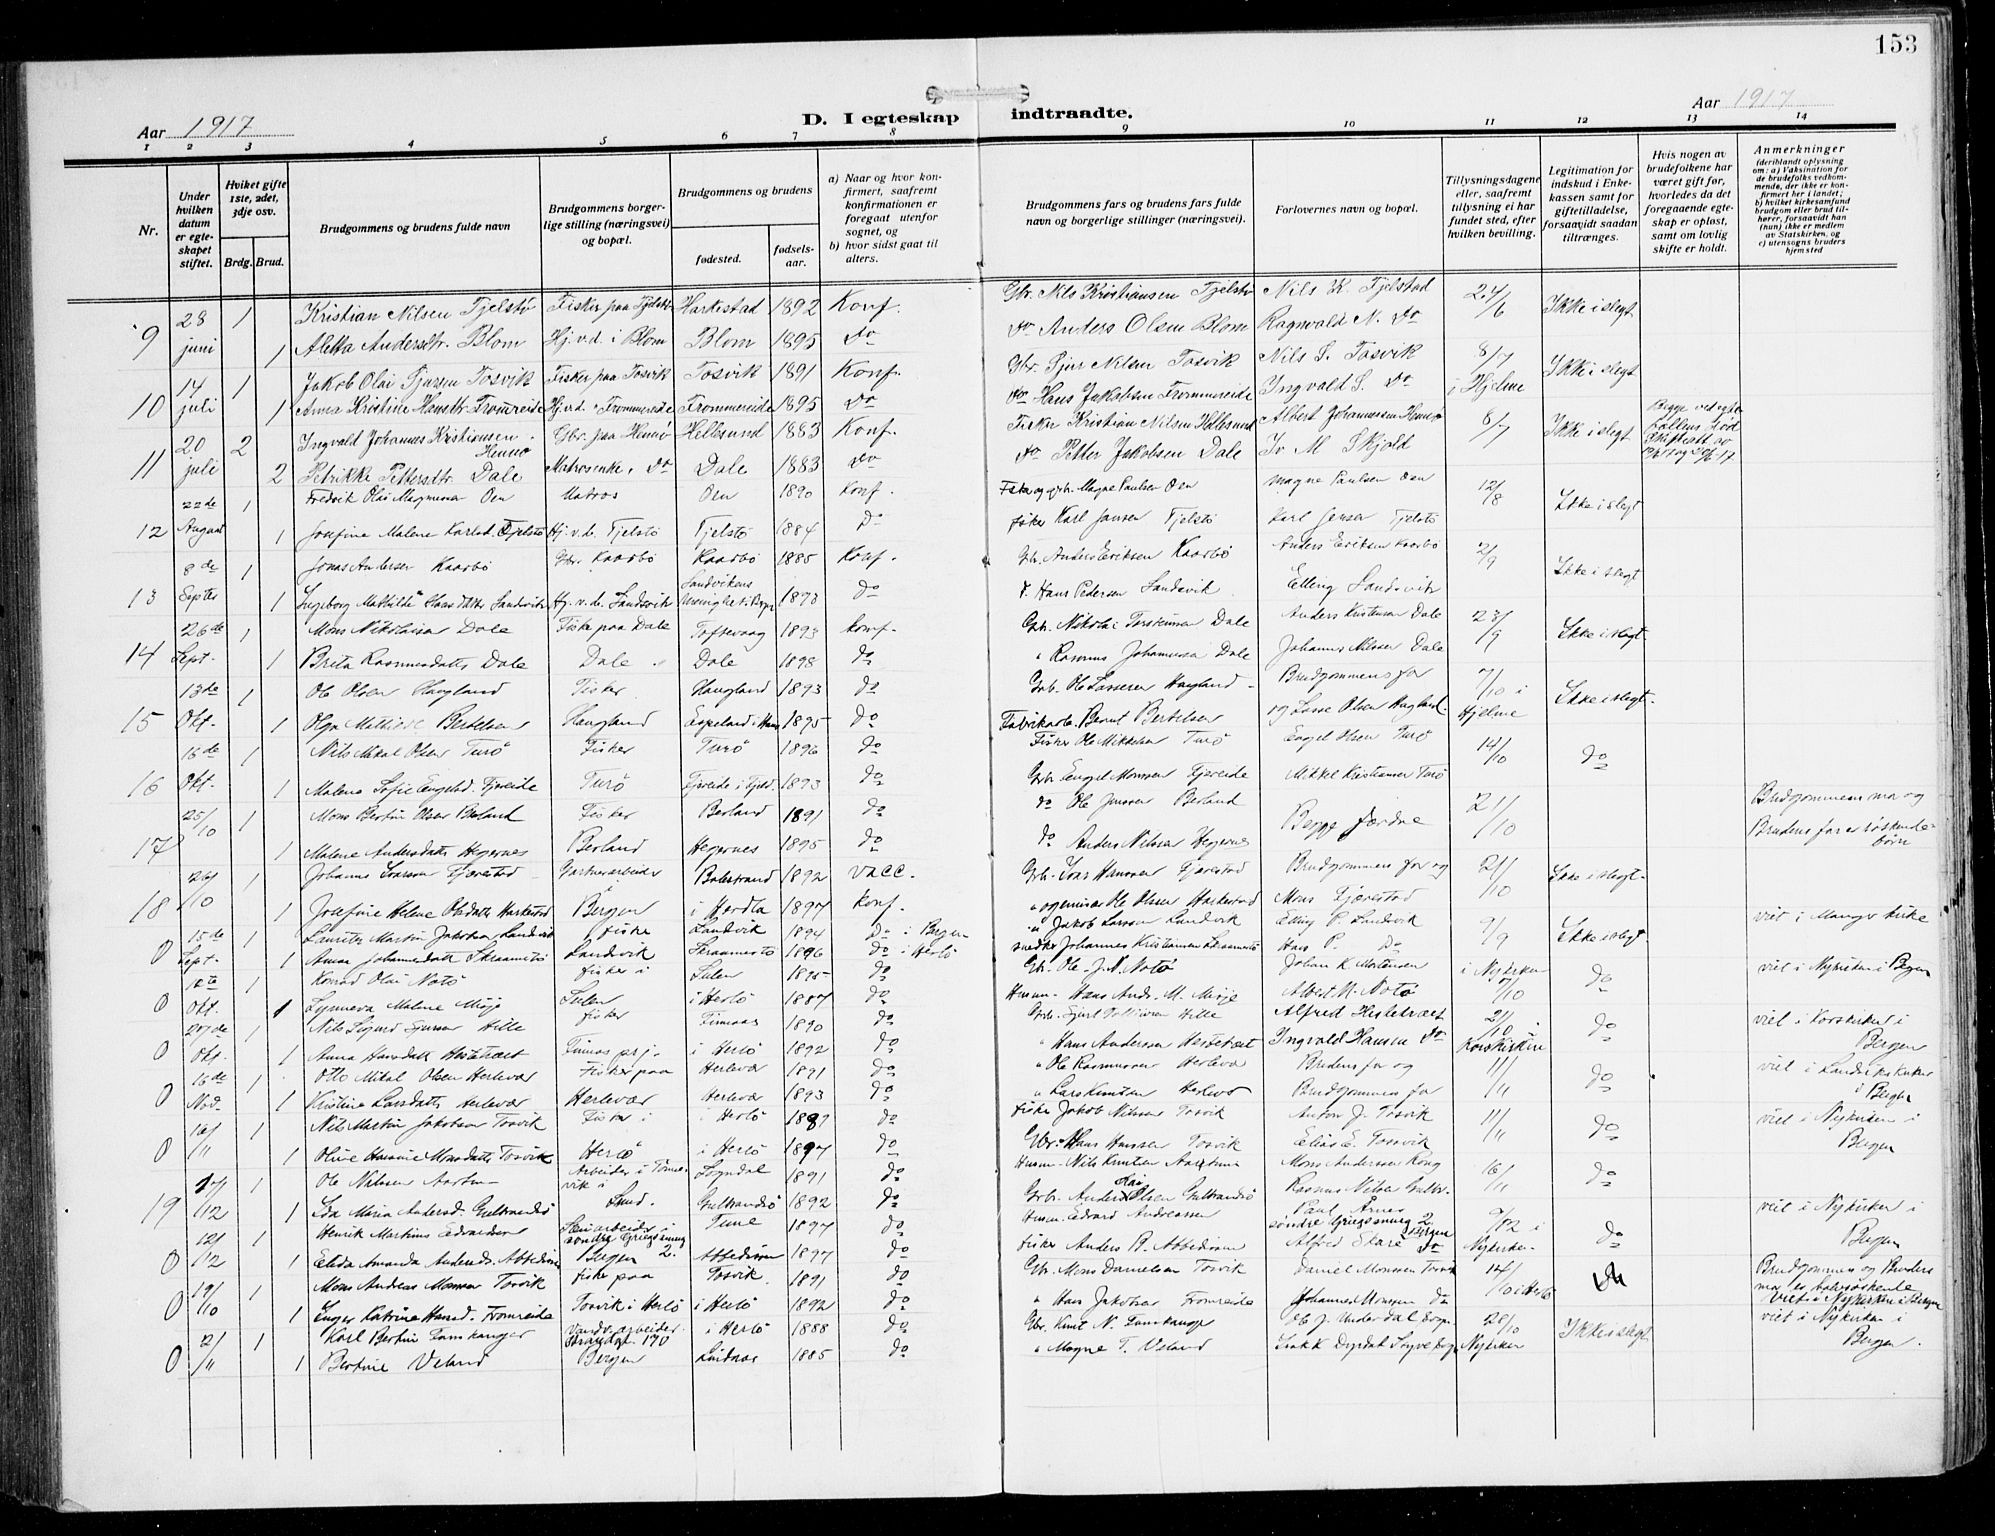 153
Aar 1917
D. I egteskap indtraadte.
Aar 1917
1 2 3 4 5 6 7 8 9 10 11 12 13 14
Nr.
Under hvilken datum er egteskapet stiftet.
Hviket gifte 1ste, 2det, 3dje osv.
Brdg. Brud.
Brudgommens og brudens fulde navn
Brudgommens borgerlige stilling (næringsvei) og bopæl.
Brudgommens og brudens
fødested.
fødselsaar.
a) Naar og hvor konfirmert, saafremt konfirmationen er foregaat utenfor sognet, og
b) hvor sidst gaat til alters.
Brudgommens fars og brudens fars fulde navn og borgerlige stillinger (næringsvei).
Forlovernes navn og bopæl.
Tillysningsdagene eller, saafremt tillysning ei har fundet sted, efter hvilken bevilling.
Legitimation for indskud i Enkekassen samt for giftetilladelse, forsaavidt saadan tiltrænges.
Hvis nogen av brudefolkene har været gift før, hvorledes da det foregaaende egteskap er opløst, samt om lovlig skifte er holdt.
Anmerkninger
(deriblandt oplysning om: a) Vaksination for de brudefolks vedkommende, der ikke er konfirmert her i landet; b) hvilket kirkesamfund brudgom eller brud tilhører, forsaavidt han (hun) ikke er medlem av Statskirken, og c) utensogns bruders hjemsted
9 28 juni 1 Kristian Nilsen Tjelstø Fisker paa Tjelstø Harkestad 1892 Konf. Gbr. Nils Kristiansen Tjelstø Nils K. Tjelstad 24/6 Ikke i slegt
1 Aletta Andersdtr. Blom Hj.v.d. i Blom Blom 1895 do do Anders Olsen Blom Ragnvald N. do
10 14 juli 1 Jakob Olai Gjersen Tosvik Fisker paa Tosvik Tosvik 1891 Konf. Gbr. Gjer Nilsen Tosvik Nils S. Tosvik 8/7 i Hjelme Ikke i slegt
1 Anna Kristine Hansdtr. Frommereide Hj.v.d. Frommereide Frommereide 1895 do do Hans Jakobsen Frommereide Ingvald S. do
11 20 juli 2 Ingvald Johannes Kristiansen Hennø Gbr. paa Hennø Hellesund 1883 Konf. Fisker Kristian Nilsen Hellesund Albert Johannessen Hennø 8/7 Ikke i slegt Begge ved egtefællens død
2 Petrikke Pettersdtr. Dale Matrosenke, do Dale 1883 do do Petter Jakobsen Dale Iv M Skjold
12 22de August 1 Fredrik Olai Magnussen Oen Matros Oen 1890 Konf. Magne Paulsen Oen Magne Paulsen Oen 12/8 Ikke i slegt
1 Josefine Malene Karlsd. Tjelstø Hj.v.d. Tjelstø Tjelstø 1884 do Fisker Karl Jansen Tjelstø Karl Jensen Tjelstø
13 8de Septbr 1 Jonas Andersen Kaarbø Gbr. Kaarbø Kaarbø 1885 Konf. Gbr. Anders Eriksen Kaarbø Anders Eriksen Kaarbø 2/9 Ikke i slegt
1 Ingeborg Mathilde Hansdatter Sandvik Hj.v.d. Sandvik Sandvikens menighet i Bergen 1893 do F. Hans Pedersen Sandvik Elling Sandvik
14 26de Sept. 1 Mons Nikolaisen Dale Fisker paa Dale Toftevaag 1893 Konf. Gbr. Nikolai Torsteinsen Dale Anders Kristensen Dale 23/9 Ikke i slegt
1 Brita Rasmusdatter Dale Dale " Dale 1898 do " Rasmus Johannessen Dale Johannes Nilssen Dale
15 13de Okt. 1 Ole Olsen Haugland Fisker Haugland 1893 do Gbr. Ole Larssen Haugland Brudgommens far 7/10 i Hjelme Ikke i slegt
1 Olga Mathilde Bertelsen Haugland Espeland i Haus 1895 do Fabrikarb. Bernt Bertelsen og Lasse Olsen Haugland
16 16de Okt. 1 Nils Mikal Olsen Turø Fisker Turø 1896 do Fisker Ole Mikkelsen Turø Engel Olsen Turø 14/10 do
1 Malene Sofie Engelsd. Fjæreide Turø Fjæreide i Fjeld 1893 do Gbr. Engel Monssen Fjæreide Mikkel Kristiansen Turø
17 25/10 1 Mons Bertin Olsen Berland Fisker Berland 1891 do do Ole Jenssen Berland Begge fædrene 21/10 Brudgommens mor og
1 Malene Andersdatter Hegernes Berland Hegernes 1895 do do Anders Nilssen Hegernes Brudens far er søskendebørn
18 26/10 1 Johannes Ivarssen Fjærestad Gartnerarbeider Balestrand 1892 vacc. Gbr. Ivar Hanssen Fjærestad Brudgommens far og 21/10 Ikke i slegt
1 Josefine Helene Olsdatter Harkestad Bergen i Herdla 1897 Konf. Ole Olssen Harkestad Mons Fjærestad
0 15de Sept. 1 Lauritz Martin Jakobsen Landvik fisker Landvik 1894 do i Bergen " Jakob Larssen Landvik Elling P. Landvik 9/9 Ikke i slegt viet i Manger kirke
1 Anna Johannesdatter Skraamestø Landvik Skraamestø 1896 do i Herlø snedker Johannes Kristiansen Skraamestø Hans P. do
0 Okt. 1 Konrad Olai Notø fisker i Sulen 1895 do Gbr. Ole J. N. Notø Johan K. Mortensen i Nykirken 7/10 do viet i Nykirken i Bergen
1 Synneva Malene Misje Sulen i Herlø 1887 do Husm. Hans Andr. M. Misje Albert N. Notø
0 27de Okt. 1 Nils Sigurd Gjersen Hille fisker 1890 do Alfred Hestetræet 21/10 i Korskirken do viet i Korskirken i
1 Anna Hansdatter Hestetræet i Herlø 1892 do " Hans Anderssen Hestetræet Ingvald Hansen do Bergen
0 16de Nov. 1 Otto Mikal Olsen Herlevær Fisker paa Herlevær 1891 do " Ole Rasmussen Herlevær Brudens far og 11/11 do viet i
1 Kristine Larsdatter Herlevær Herlevær Herlevær 1893 do " Lars Knutsen Herlevær Brudgommens far i Bergen
0 16/11 1 Nils Martin Jakobsen Tosvik Fisker i Herlø do fisker Jakob Nilssen Tosvik Anton J. Tosvik 11/11 do viet i Nykirken i
1 Oline Monsdatter Tosvik Herlø i Herlø 1897 do Gbr. Hans Hanssen Tosvik Elias E. Tosvik Bergen
19 1 Ole Nilssen Arbeider i Sogndal 1891 do Husm. Nils Knutsen Mons Anderssen Rong 16/11 do
12 1 Ida Maria Andersd. Gulbrandsø Sund. Gulbrandsø 1892 do Gbr. Anders Olai Olsen Gulbrandsø Rasmus Nilsen viet i Nykirken i
0 12/12 1 Henrik Martinus Edvardsen søndre Griegssmug 2. Tune 1897 do Husm. Edvard Andreassen Paul Årnes søndre Griegssmug 2 Bergen 9/12 i Nykirken do Bergen
1 Elida Amanda Andersd. Abbedissen Bergen Abbedissen 1897 do fisker Anders R. Abbedissen Alfred Skare do
0 19/10 1 Mons Andreas Monsen Tosvik fisker paa Tosvik 1891 do Gbr. Mons Danielsen Tosvik Daniel Monssen Tosvik 14/10 i Herlø do Brudgommens og Brudens
1 Inger Katrine Hansd. Fromreide Tosvik i Herlø i Herlø 1892 do " Hans Jakobsen Fromreide Johannes Monsen do mor er halvsøskende viet i Nykirken i Bergen
0 2/11 1 Karl Bertin Lamskauger arbeider Strandgt. 170 i Herlø 1888 do Gbr. Knut N. Lamskauger Ole J. Underdal 28/10 Nykirken Ikke i slegt viet i Nykirken i
1 Bertine Veland Bergen Lindaas 1885 do " Magne T. Veland Isakk Dyrdal Bergen.